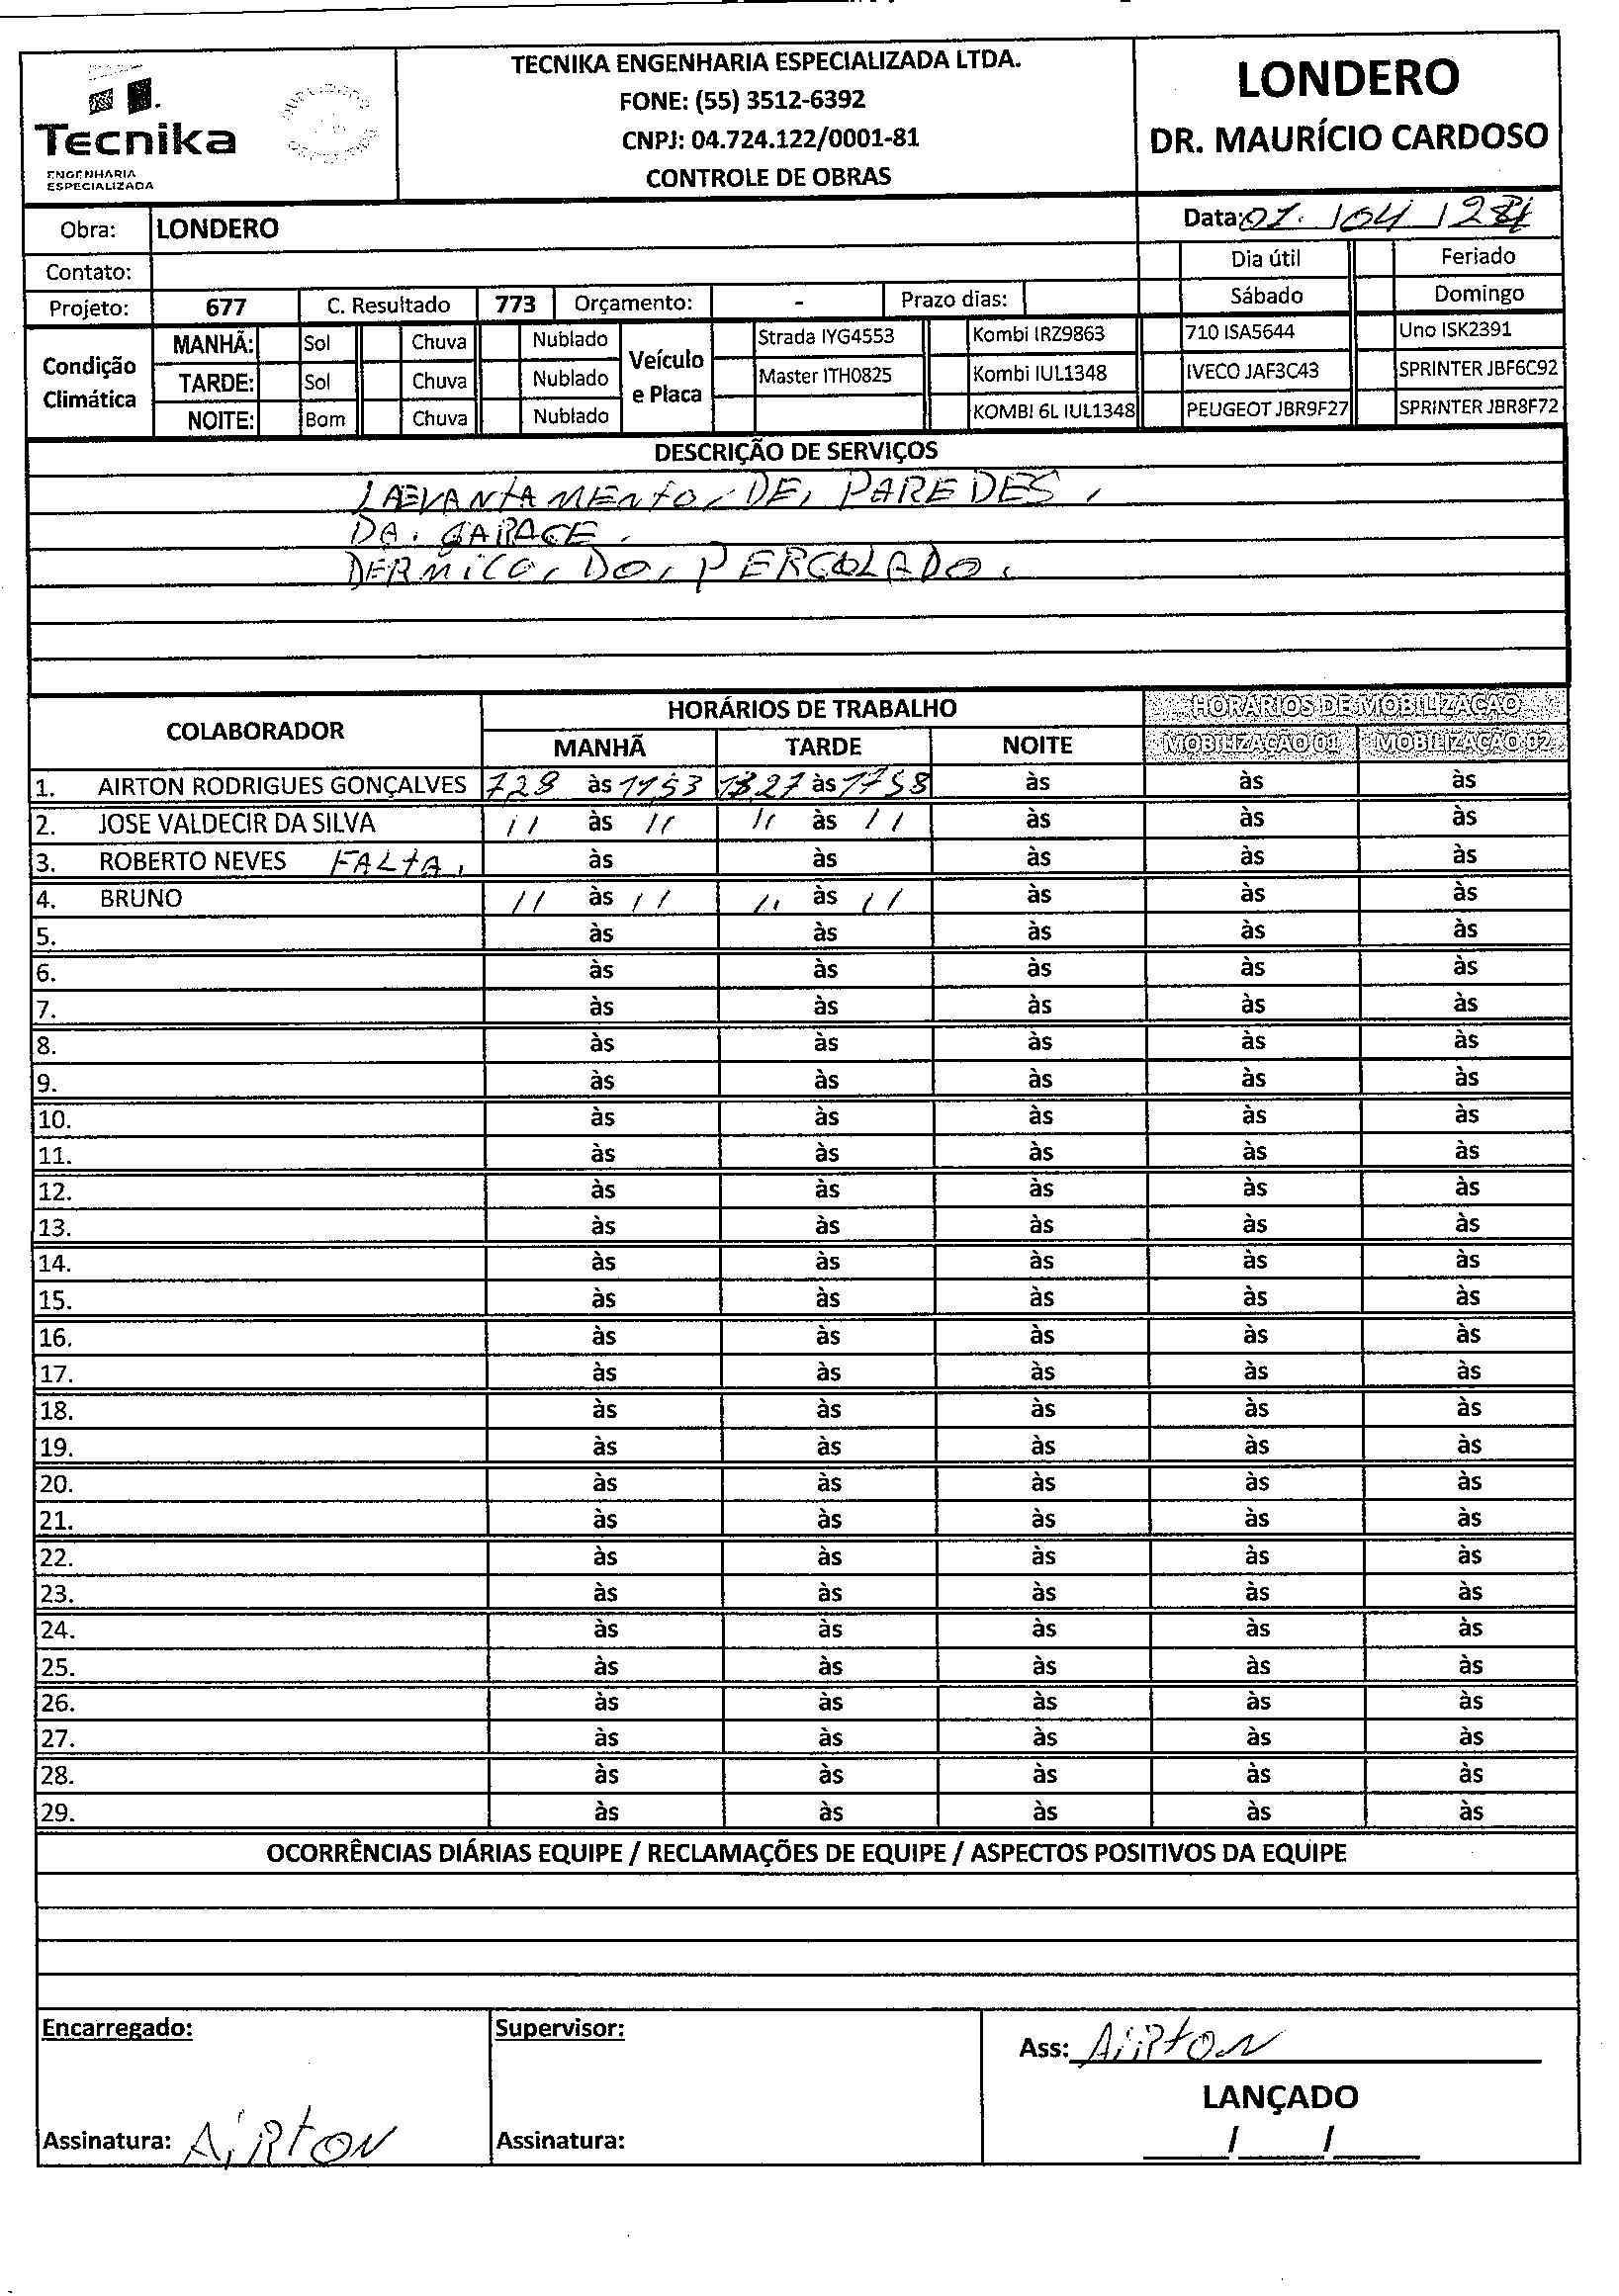 Tecnika
ENGENHARIA
ESPECIALIZADA
TECNIKA ENGENHARIA ESPECIALIZADA LTDA.
FONE: (55) 3512-6392
CNPJ: 04.724.122/0001-81
CONTROLE DE OBRAS
LONDERO
DR. MAURÍCIO CARDOSO
Obra: LONDERO
Data: 01. / 04 /
Contato:
Dia útil Feriado
Projeto: 677 C. Resultado 773 Orçamento: - Prazo dias: Sábado Domingo
Condição Climática
MANHÃ: Sol Chuva Nublado
TARDE: Sol Chuva Nublado
NOITE: Bom Chuva Nublado
Veículo e Placa
Strada IYG4553 Kombi IRZ9863 710 ISA5644 Uno ISK2391
Master ITH0825 Kombi IUL1348 IVECO JAF3C43 SPRINTER JBF6C92
KOMBI 6L IUL1348 PEUGEOT JBR9F27 SPRINTER JBR8F72
DESCRIÇÃO DE SERVIÇOS
LAEVANTAMENTO, DE, PAREDES,
DA. GARAGE.
DERMICO, DO, PERGOLADO.
COLABORADOR HORÁRIOS DE TRABALHO HORÁRIOS DE MOBILIZAÇÃO
MANHÃ TARDE NOITE MOBILIZAÇÃO 01 MOBILIZAÇÃO 02
1. AIRTON RODRIGUES GONÇALVES 7,28 às 11,53 13,27 às 1758 às às às
2. JOSE VALDECIR DA SILVA 11 às 11 11 às 11 às às às
3. ROBERTO NEVES FALTA, às às às às às
4. BRUNO 11 às 11 11 às 11 às às às
5. às às às às às
6. às às às às às
7. às às às às às
8. às às às às às
9. às às às às às
10. às às às às às
11. às às às às às
12. às às às às às
13. às às às às às
14. às às às às às
15. às às às às às
16. às às às às às
17. às às às às às
18. às às às às às
19. às às às às às
20. às às às às às
21. às às às às às
22. às às às às às
23. às às às às às
24. às às às às às
25. às às às às às
26. às às às às às
27. às às às às às
28. às às às às às
29. às às às às às
OCORRÊNCIAS DIÁRIAS EQUIPE / RECLAMAÇÕES DE EQUIPE / ASPECTOS POSITIVOS DA EQUIPE
Encarregado:
Assinatura: AIRTON
Supervisor:
Assinatura:
Ass: AIRTON
LANÇADO
____/____/____